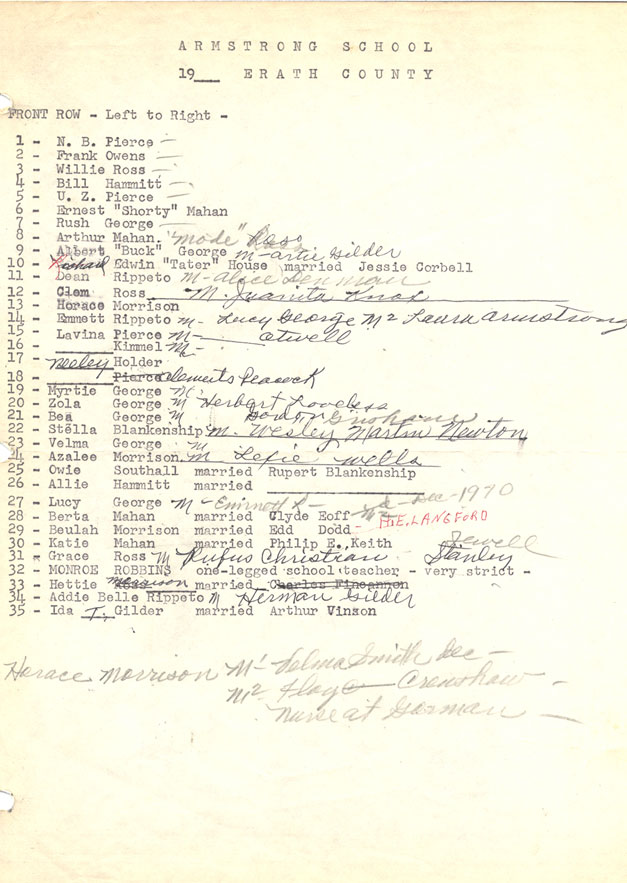 ARMSTRONG SCHOOL
19___ ERATH COUNTY
FRONT ROW - Left to Right -
1 - N. B. Pierce -
2 - Frank Owens -
3 - Willie Ross -
4 - Bill Hammitt -
5 - U. Z. Pierce -
6 - Ernest "Shorty" Mahan
7 - Rush George -
8 - Arthur Mahan. "mode" Ross
9 - Albert "Buck" George M - artie Gilder
10 - Richard Edwin "Tater" House married Jessie Corbell
11 - Dean Rippeto M - alice Denman
12 - Clem Ross M. Juanita Knox
13 - Horace Morrison
14 - Emmett Rippeto M - Lucy George M2 Laura armstrong
15 - Lavina Pierce M - atwell
16 - ______ Kimmel M -
17 - Neeley Holder
18 - ______ Pierce Clements Peacock
19 - Myrtie George M
20 - Zola George M Herbert Loveless
21 - Bea George M Gordon
22 - Stella Blankenship M. Wesley Martin Newton
23 - Velma George M
24 - Azalee Morrison M Lexie Wells
25 - Owie Southall married Rupert Blankenship
26 - Allie Hammitt married ______
27 - Lucy George M - Emmett R - Dec - 1970
28 - Berta Mahan married Clyde Eoff M2
29 - Beulah Morrison married Edd Dodd - H.E. LANGFORD
30 - Katie Mahan married Philip E. Keith Jewell
31 - Grace Ross M Rufus Christian Stanley
32 - MONROE ROBBINS one-legged school teacher - very strict -
33 - Hettie Ross Morrison married Charles Fincannon
34 - Addie Belle Rippeto M Herman Gilder
35 - Ida T. Gilder married Arthur Vinson
Horace Morrison M1 Velma Smith Dec -
M2 Floy Crenshaw -
Nurse at Gorman -